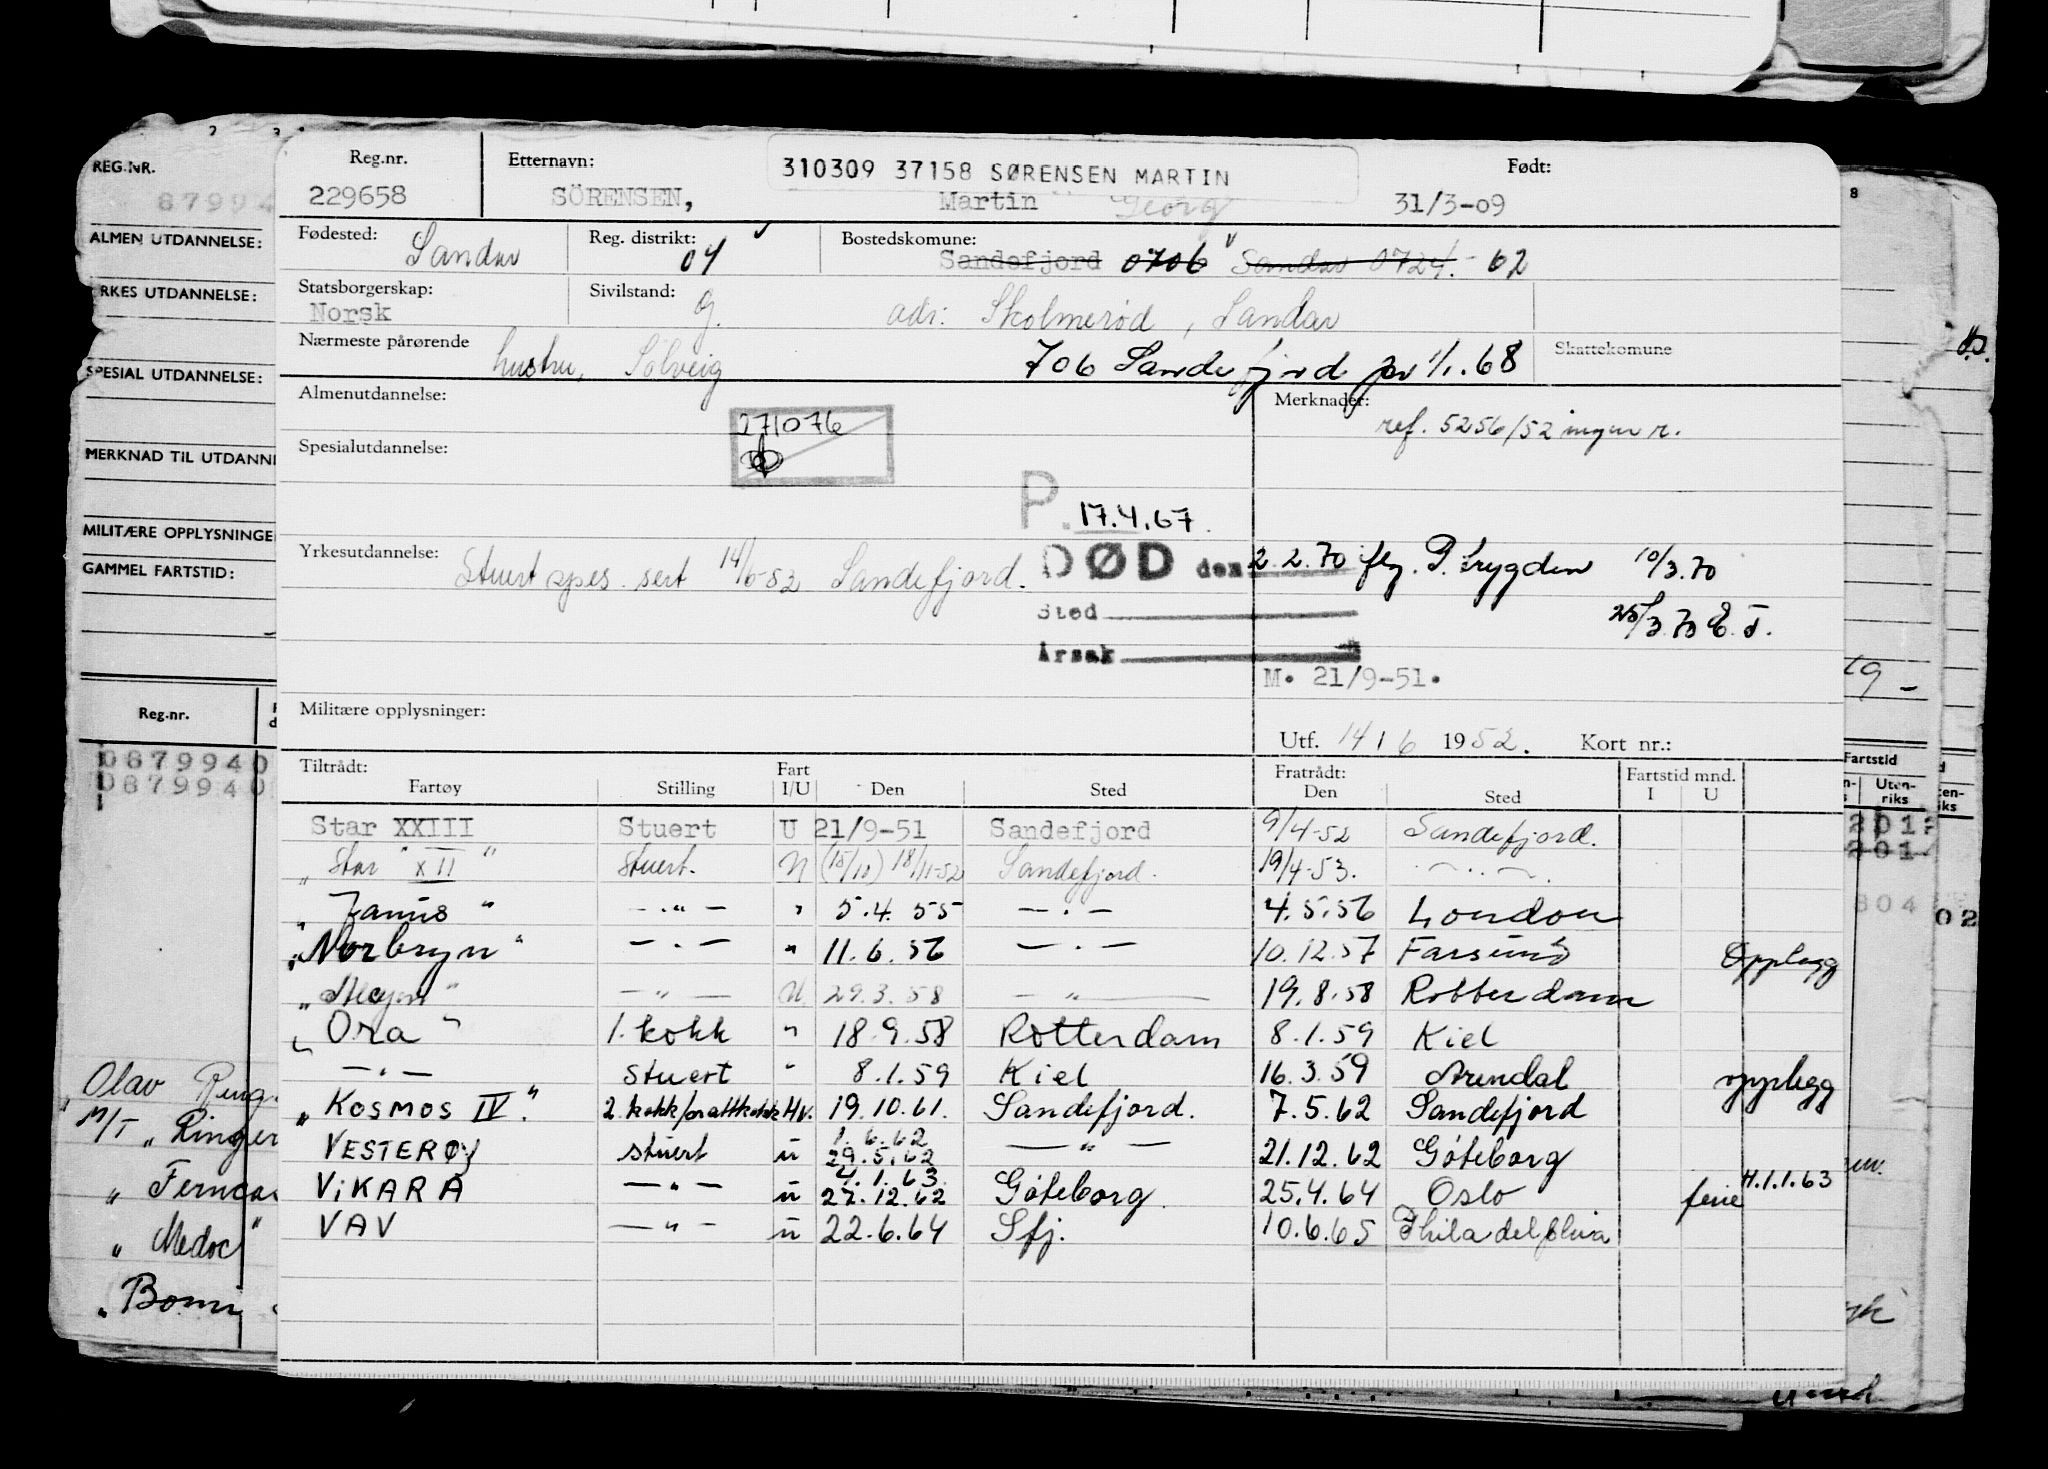 REG.NR.
87994
ALMEN UTDANNELSE:
RKES UTDANNELSE:
SPESIAL UTDANNELSE:
MERKNAD TIL UTDANN
MILITÆRE OPPLYSNINGE
GAMMEL FARTSTID:
Reg.nr.
0879940
0879940
Olav Ring
M/T „Ringer
„ Ferncas
„ Medoc"
„ Bomi
Reg.nr. Etternavn: 310309 37158 SØRENSEN MARTIN Født:
229658 SÖRENSEN, Martin Georg 31/3-09
Fødested: Sandar Reg. distrikt: 04 Bostedskomune: Sandefjord 0706 Sandar 0724. - 62
Statsborgerskap: Norsk Sivilstand: g. adr: Skolmerød, Sandar
Nærmeste pårørende hustru, Solveig 706 Sandefjord pr 1/1.68 Skattekomune
Almenutdannelse: Merknader:
271076 ref. 5256/52 ingen r.
Spesialutdannelse:
P. 17.4.67.
Yrkesutdannelse: Stuert spes. sert 14/6-52 Sandefjord. DØD den 2.2.70 flg. P.trygden 10/3.70
Sted 25/3.70 E.T.
Årsak
M. 21/9-51.
Militære opplysninger:
Utf. 14 / 6 1952. Kort nr.:
Tiltrådt: Fart Fratrådt: Fartstid mnd. Fartstid
Fartøy Stilling I/U Den Sted Den Sted I U Uten-riks
Star XXIII Stuert U 21/9-51 Sandefjord 9/4-52 Sandefjord.
„ Star XII " Stuert. U (15/10) 18/11-52 Sandefjord. 19/4-53. -..-.
„ Janus " -.."- " 5.4.55 -.- 4.5.56 London
„ Norbryn " -.- " 11.6.56 -.- 10.12.57 Farsund Opplegg
„ " -"- U 29.3.58 -"- 19.8.58 Rotterdam
„ Ora " 1. kokk " 18.9.58 Rotterdam 8.1.59 Kiel
-.- Stuert " 8.1.59 Kiel 16.3.59 Arendal opplegg
„ KOSMOS IV." 2. kokk/ Hv. 19.10.61. Sandefjord. 7.5.62 Sandefjord
VESTERØY stuert u 1.6.62 29.5.62 -"- 21.12.62 Göteborg
VIKARA -"- u 4.1.63 27.12.62 Göteborg. 25.4.64 Oslo ferie H.1.1.63
VAV -"- u 22.6.64 Sfj. 10.6.65 Philadelphia